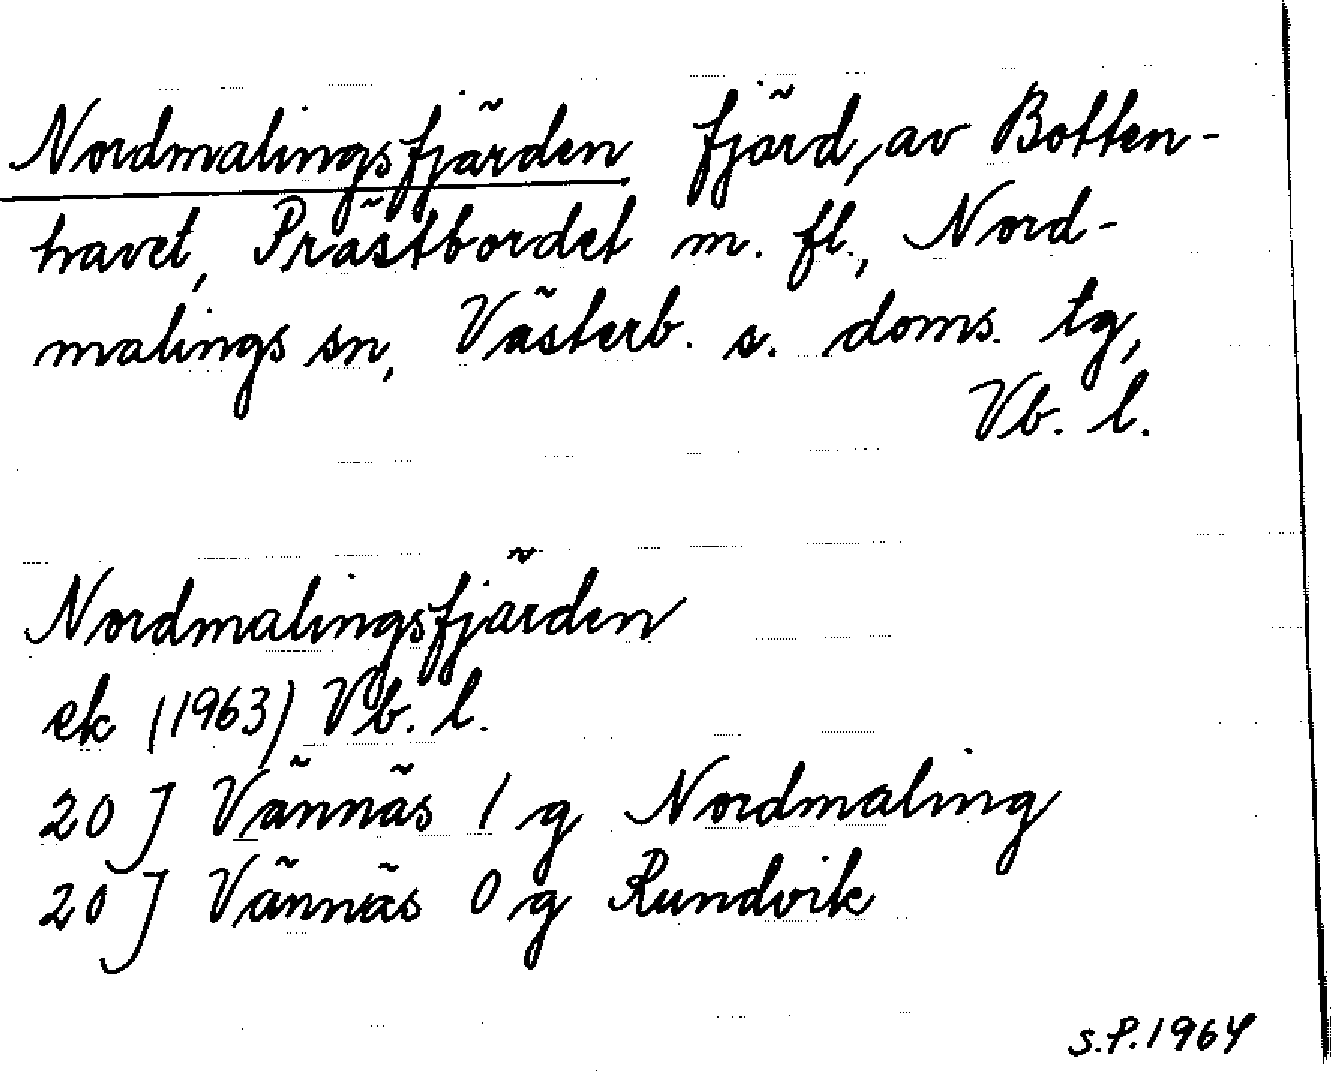 Nordmalingsfjärden fjärd, av Botten-
havet, Prästbordet m. fl., Nord-
malings sn, Västerb. s. doms. tg,
Vb. l.
Nordmalingsfjärden
ek (1963) Vb. l.
20 J Vännäs 1 g Nordmaling
20 J Vännäs 0 g Rundvik
S.P. 1964